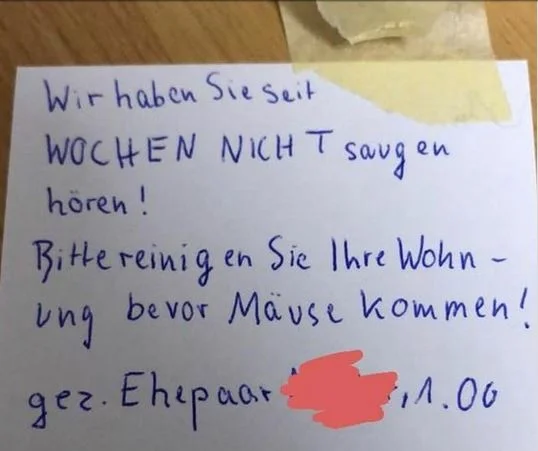 Wir haben Sie seit
WOCHEN NICHT saugen
hören!
Bitte reinigen Sie Ihre Wohn-
ung bevor Mäuse kommen!
gez. Ehepaar , 1.OG